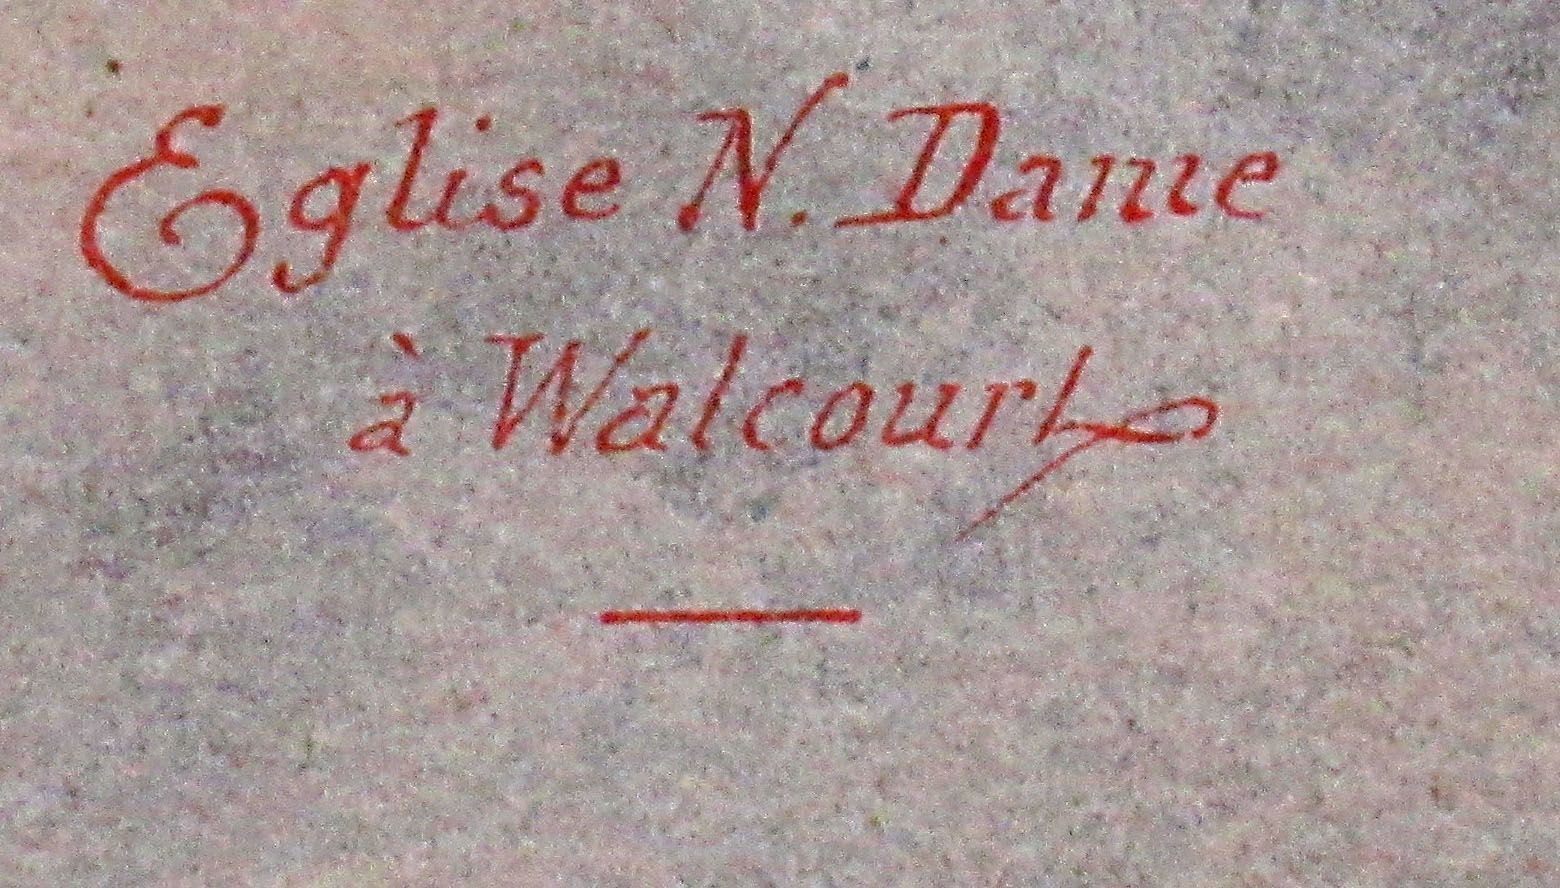 Eglise N. Dame
à Walcourt